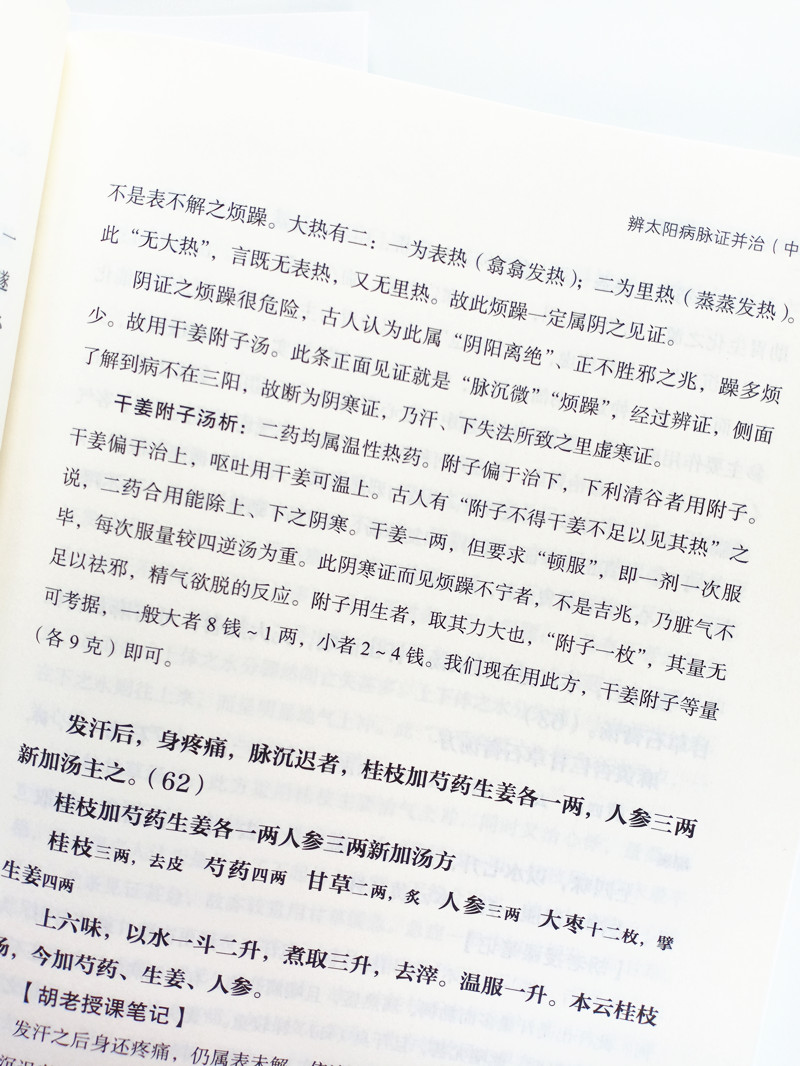 辨太阳病脉证并治（中
不是表不解之烦躁。大热有二：一为表热（翕翕发热）；二为里热（蒸蒸发热）。
此“无大热”，言既无表热，又无里热。故此烦躁一定属阴之见证。
阴证之烦躁很危险，古人认为此属“阴阳离绝”、正不胜邪之兆，躁多烦
少。故用干姜附子汤。此条正面见证就是“脉沉微”“烦躁”，经过辨证，侧面
了解到病不在三阳，故断为阴寒证，乃汗、下失法所致之里虚寒证。
干姜附子汤析：二药均属温性热药。附子偏于治下，下利清谷者用附子。
干姜偏于治上，呕吐用干姜可温上。古人有“附子不得干姜不足以见其热”之
说，二药合用能除上、下之阴寒。干姜一两，但要求“顿服”，即一剂一次服
毕，每次服量较四逆汤为重。此阴寒证而见烦躁不宁者，不是吉兆，乃脏气不
足以祛邪，精气欲脱的反应。附子用生者，取其力大也，“附子一枚”，其量无
可考据，一般大者8钱~1两，小者2~4钱。我们现在用此方，干姜附子等量
（各9克）即可。
发汗后，身疼痛，脉沉迟者，桂枝加芍药生姜各一两，人参三两
新加汤主之。（62）
桂枝加芍药生姜各一两人参三两新加汤方
桂枝三两，去皮 芍药四两 甘草二两，炙 人参三两 大枣十二枚，擘
生姜四两
上六味，以水一斗二升，煮取三升，去滓。温服一升。本云桂枝
汤，今加芍药、生姜、人参。
【胡老授课笔记】
发汗之后身还疼痛，仍属表未解